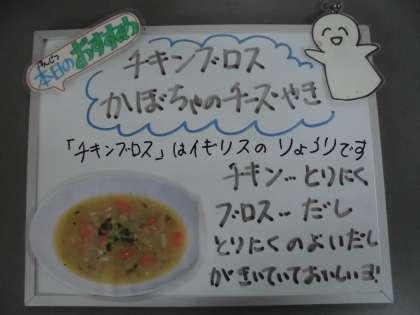 本日のおすすめ
チキンブロス
かぼちゃのチーズやき
「チキンブロス」はイギリスのりょうりです
チキン…とりにく
ブロス…だし
とりにくのよいだし
がきいていておいしいヨ!